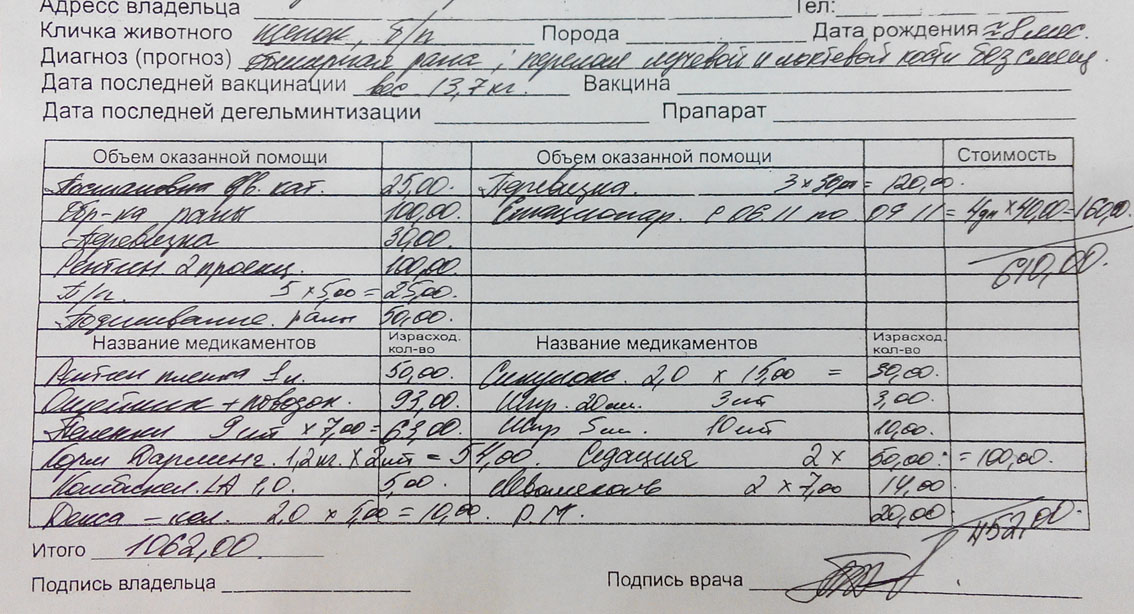 Адресс владельца Тел:
Кличка животного Щенок, б/п Порода Дата рождения ≈8 мес.
Диагноз (прогноз) рана, перелом лучевой и локтевой кости без смещ.
Дата последней вакцинации вес 13,7 кг. Вакцина
Дата последней дегельминтизации Прапарат
Объем оказанной помощи Объем оказанной помощи Стоимость
Постановка в/в. кат. 25,00. Перевязка. 3 x = 120,00.
Обр-ка раны 100,00. Стационар. с 06.11 по 09.11 = 4дн x 40,00 = 160,00
Перевязка 30,00.
Рентген 2 проекц. 100,00 610,00.
П/к. 5 x 5,00 = 25,00.
Подшивание раны 50,00.
Название медикаментов Израсход. кол-во Название медикаментов Израсход. кол-во
Рентген пленка 1 л. 50,00. Синулокс. 2,0 x 15,00 = 30,00.
Ошейник + поводок. 93,00. Шпр. 20 мл. 3 шт 3,00.
Пеленки 9 шт x 7,00 = 63,00. Шпр 5 мл. 10 шт 10,00.
Корм Дарлинг. 1,2 кг. x 2 шт = 54,00. Седация 2 x 50,00. = 100,00.
LA 1,0. 5,00. Левомеколь 2 x 7,00 14,00.
Декса - кел. 2,0 x 5,00 = 10,00. Р.М. 20,00. 452,00
Итого 1062,00.
Подпись владельца Подпись врача